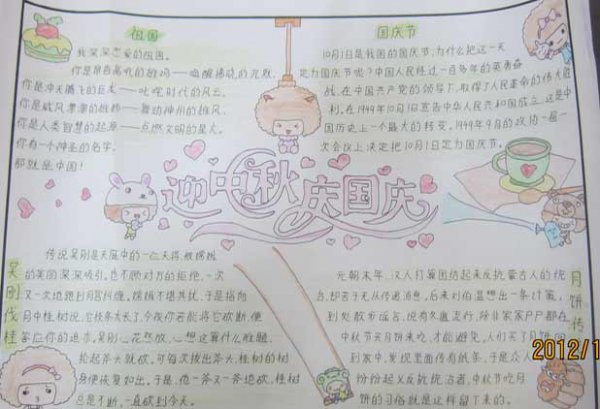 祖国
我深深恋爱的祖国。
你是昂首高吭的雄鸡——唤醒拂晓的沉默，
你是冲天腾飞的巨龙——叱咤时代的风云，
你是威风凛凛的雄狮——舞动神州的雄风，
你是人类智慧的起源——点燃文明的星火。
你有一个神圣的名字，
那就是中国！
国庆节
10月1日是我国的国庆节，为什么把这一天
定为国庆节呢？中国人民经过一百多年的英勇奋
战，在中国共产党的领导下，取得了人民革命的伟大胜
利。在1949年10月1日宣告中华人民共和国成立，这是中
国历史上一个最大的转变。1949年9月的政协一届一
次会议上决定把10月1日定为国庆节。
迎中秋庆国庆
吴刚伐桂
传说吴刚是天庭中的一位天将，被嫦娥
的美图深深吸引，也不顾对方的拒绝，一次
又一次地跑到月宫纠缠，嫦娥不堪其扰，于是指向
月中桂树说，它枝条太长了，今夜你若能将它砍断，便
答应你的追求。吴刚心花怒放，心想这算什么难题，
抡起斧头就砍，可每次拔出斧头，桂树的树
身便恢复如出。于是，他一斧又一斧地砍，桂树
总是不断，一直砍到今天。
月饼传
元朝末年，汉人打算团结起来反抗蒙古人的统
，却苦于无从传递消息。后来刘伯温想出一条计策，
到处散步谣言，说有冬瘟流行，除非家家户户都在
中秋节买月饼来吃，才能避免。人们买了月饼回
到家中，发现里面传有纸条，于是众人
纷纷起义反抗统治者，中秋节吃月
饼的习俗就是这样留下来的。
2012/1